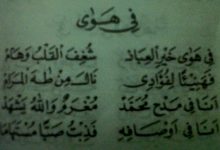 فِي هَوٰى
فِي هَوٰى خَيْرِ الْعِبَادِ شُغِفَ الْقَلْبُ وَهَامَ
فَهَنِيْئًا لِفُؤَادِي نَالَ مِنْ طٰهَ الْمَرَامَ
أَنَا فِي مَدْحِ مُحَمَّدٍ مُغْرَمٌ وَاللهُ يَشْهَدُ
أَنَا فِي أَوْصَافِهِ ذُبْتُ صَبًّا مُسْتَهَامًا